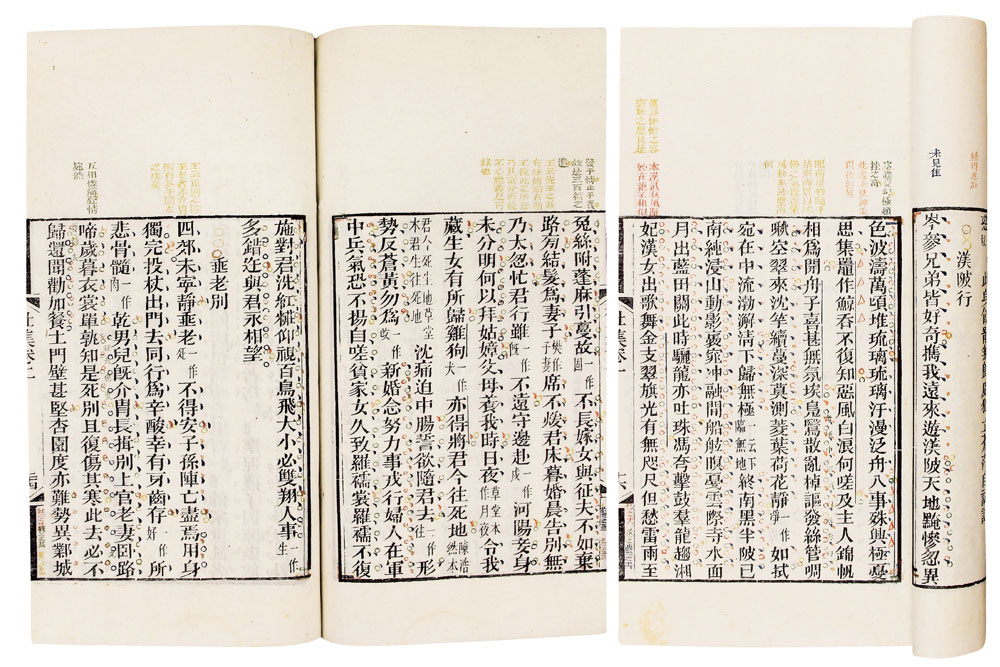 未見佳
渼陂行
岑參兄弟皆好奇攜我遠來遊渼陂天地黤慘忽異
色波濤萬頃堆琉璃琉璃汗漫泛舟入事殊興極憂
思集鼉作鯨吞不復知惡風白浪何嗟及主人錦帆
相為開舟子喜甚無氛埃鳧鷖散亂棹謳發絲管啁
啾空翠來沈竿續蔓深莫測菱葉荷花靜一作淨如拭
宛在中流渤澥清下歸無極一云下臨無地終南黑半陂已
南純浸山動影裊窕沖融間船舷暝戞雲際寺水面
月出藍田關此時驪龍亦吐珠馮夷擊鼓羣龍趨湘
妃漢女出歌舞金支翠旗光有無咫尺但愁雷雨至
杜集卷二
發乎情止乎義
故是三百篇之
遺
兔絲附蓬麻引蔓故一作固不長嫁女與征夫不如棄
路旁結髮為妻子樊作君妻席不煖君床暮婚晨告別無
乃太怱忙君行雖一作既不遠守邊赴一作戍河陽妾身
未分明何以拜姑嫜父母養我時日夜草堂本作月夜令我
藏生女有所歸雞狗一作犬亦得將君今往死地陳浩然本
君今死生地草堂本君生往死地沈痛迫中腸誓欲隨君去一作往形
勢反蒼黃勿為一作改新婚念努力事戎行婦人在軍
中兵氣恐不揚自嗟貧家女久致羅襦裳羅襦不復
施對君洗紅粧仰視百鳥飛大小必雙翔人事一作生
多錯迕與君永相望
垂老別
四郊未寧靜垂老一作死不得安子孫陣亡盡焉用身
獨完投杖出門去同行為辛酸幸有牙齒存一作好所
悲骨髓一作肉乾男兒既介胄長揖別上官老妻臥路
啼歲暮衣裳單孰知是死別且復傷其寒此去必不
歸還聞勸加餐土門壁甚堅杏園度亦難勢異鄴城
杜集卷二